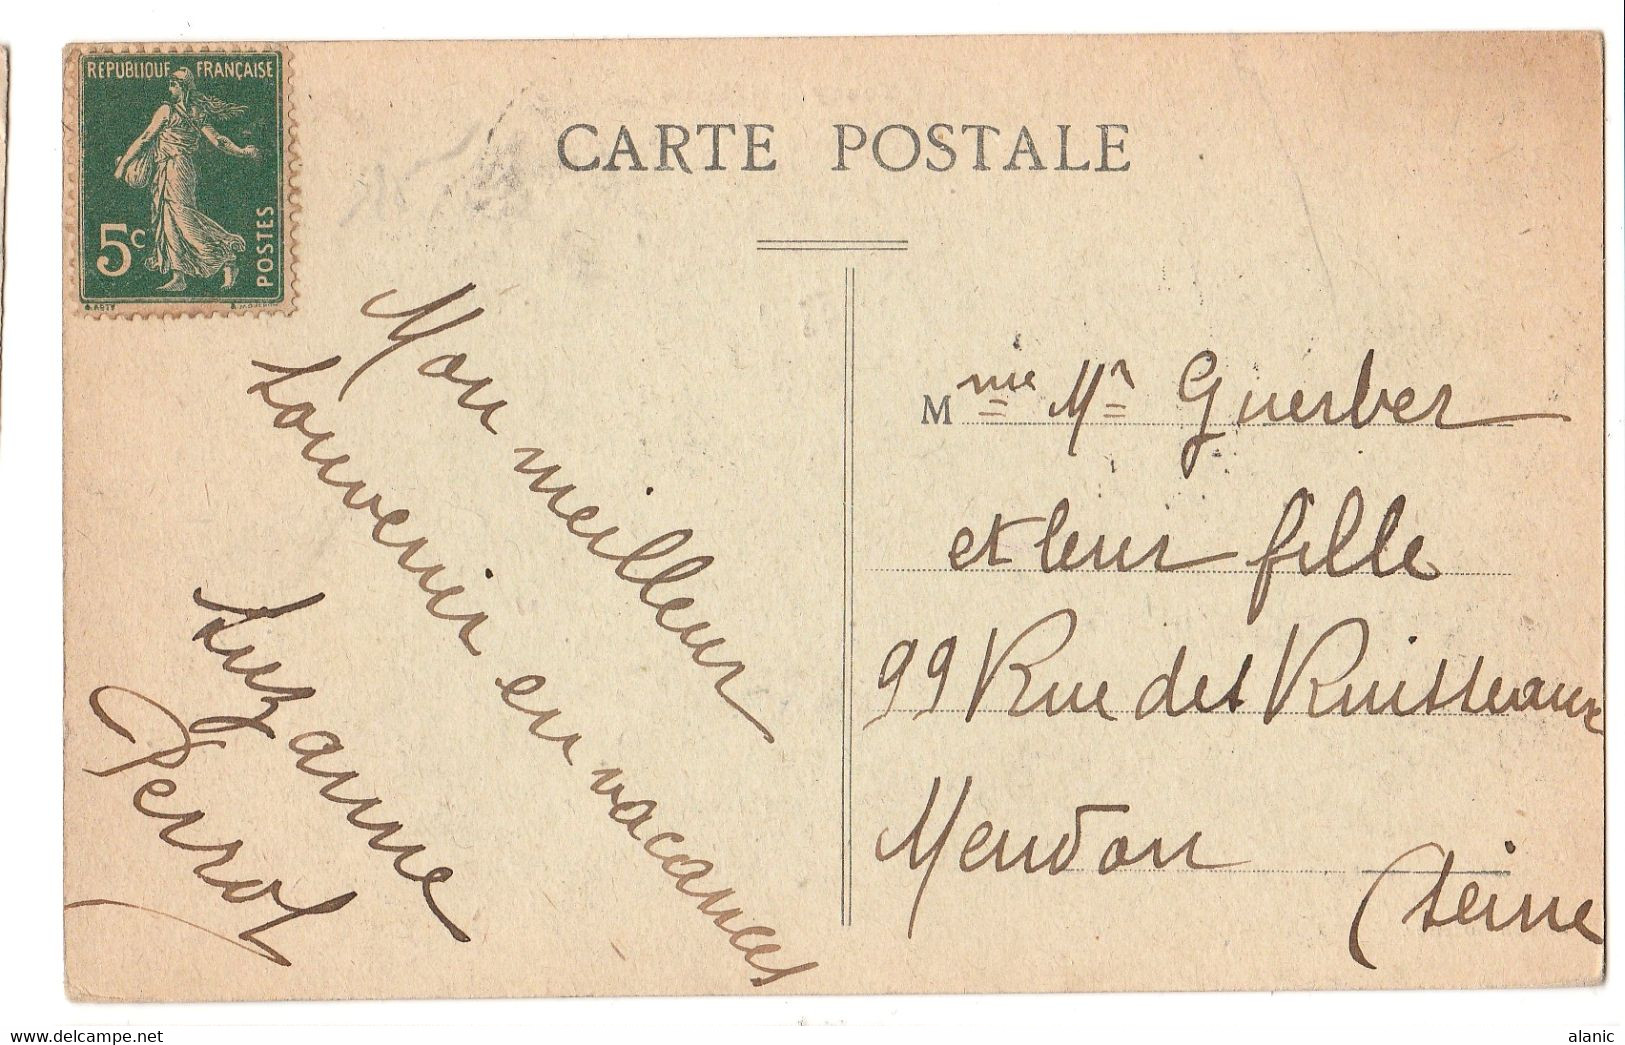 RÉPUBLIQUE FRANÇAISE
5c
POSTES
CARTE POSTALE
Mon meilleur
souvenir en vacances
Suzanne
Perrot
Mme Mr Guerber
et leur fille
99 Rue des Ruisseaux
Meudon
(Seine
alanic